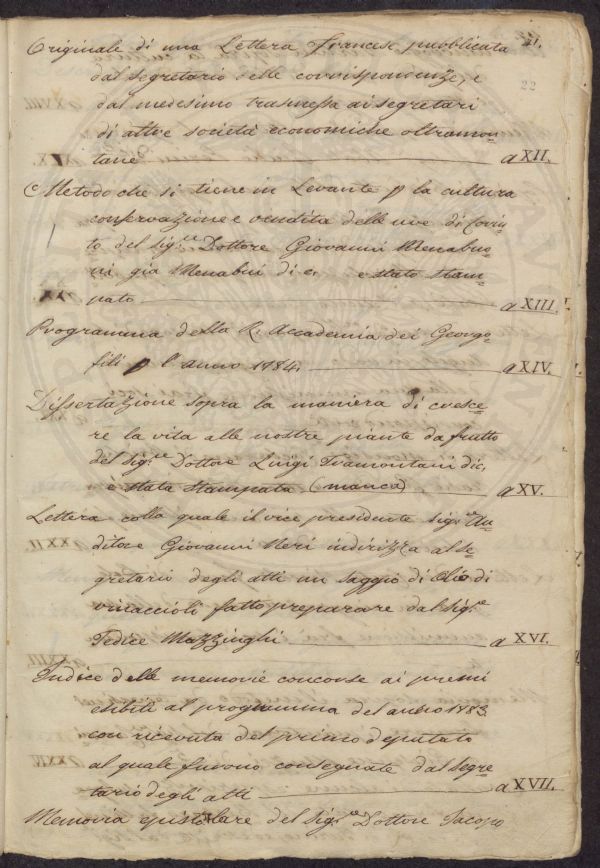 21.
22
Originale di una Lettera francese pubblicata
dal segretario delle corrispondenze, e
dal medesimo trasmessa ai segretari
di altre società economiche oltramon=
tane a XII.
Metodo che si tiene in Levante p la cultura
conservazione e vendita delle uve di Corin=
to del Sig.re Dottore Giovanni Menabuo=
ni già Menabui di c. e stato stam=
pato a XIII.
Programma della R. Accademia dei Georgo=
fili p l'anno 1784. a XIV.
Dissertazione sopra la maniera di cresce=
re la vita alle nostre piante da frutto
del Sig.re Dottore Luigi Tramontani di c,
è stata stampata (manca) a XV.
Lettera colla quale il vice presidente Sig.re Au=
ditore Giovanni Neri indirizza al Se=
gretario degli atti un saggio di olio di
vinaccioli fatto preparare dal Sig.re
Tedice Mazzinghi a XVI.
Indice delle memorie concorse ai premi
esibiti al programma del anno 1783.
con ricevuta del primo deputato
al quale furono consegnate dal Segre=
tario degli atti a XVII.
Memoria epistolare del Sig.re Dottore Jacopo